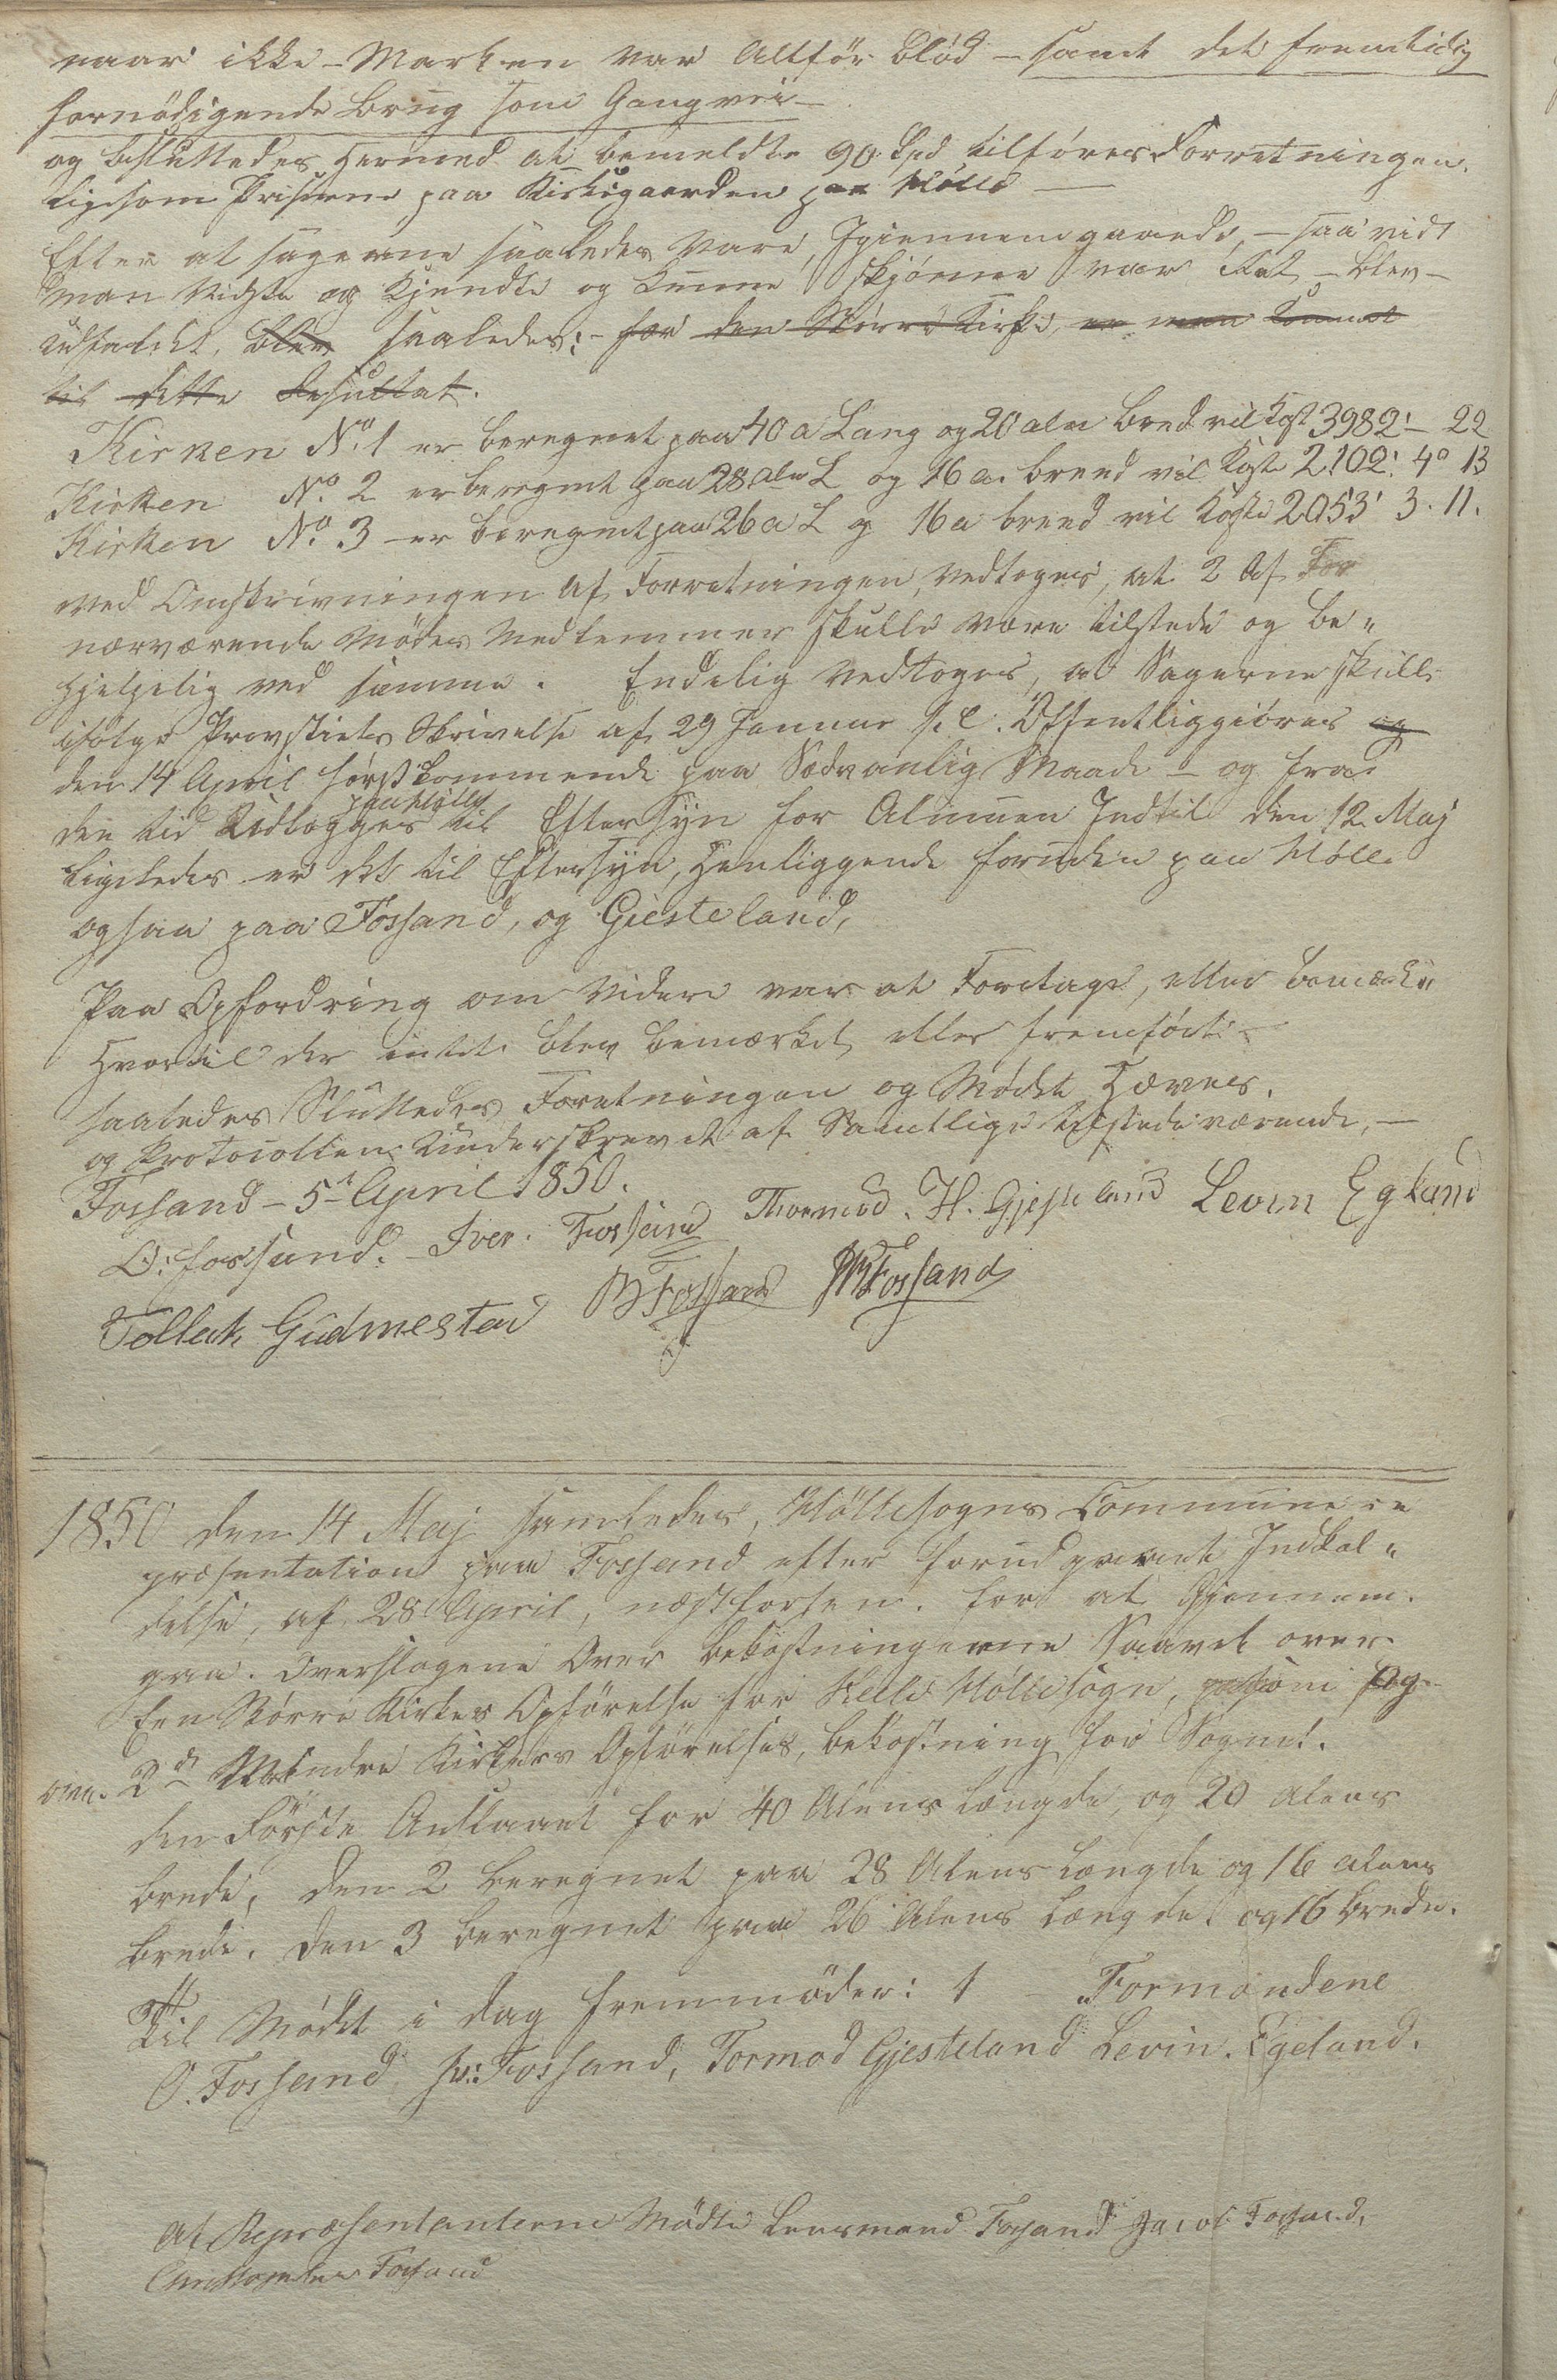 naar ikke - Marken var Altfor Blöd - samt det fremtidig
fornödigende Brug som Gangvei -
og besluttedes hermed at bemeldte 90 Spd tilföres Forretningen.
ligesom Priserne paa Kirkegaarden paa Hölle -
Efter at sagerne saaledes Vare, Igiennemgaaede, - saa vidt
man Vidste og Kjendte og kunne skjönne var Ret - blev -
udfaldet, blev saaledes: - for den Större Kirke, er man kommet
til dette Resultat.
Kirken No. 1 er beregnet paa 40 a Lang og 20 alen Bred vil kost 3982: - 22
Kirken No. 2 er beregnet paa 28 alen L og 16 a. breed vil koste 2102: 4o 13
Kirken No. 3 - er beregnet paa 26 a L og 16 a breed vil koste 2053: 3. 11.
ved Omskrivningen af Forretningen, vedtoges, at 2 Af For
nærværende Mödes Medlemmer skulle være tilstede og be„
hjelpelig ved samme. Endelig vedtoges, at Sagerne skulle
ifölge Provstiets Skrivelse af 29 Januar d. A. Offentliggiöres og
den 14 April förstkommende paa Sædvanlig Maade - og fra
paa Hölle
den tid Udlægges til Eftersyn for Almuen Indtil den 12. Maj
Ligeledes er det til Eftersyn, henliggende foruden paa Hölle
ogsaa paa Fossand, og Giesteland,
Paa Opfordring om Videre var at Foretage, eller bemærke„
hvortil der intet blev bemærket eller fremfört -
saaledes Sluttedes Foretningen og Mödet Hæves.
og Protocollen Underskrevet af Samtlige tilstedeværende, -
Fossand - 5te April 1850.
O: Fossand. - Iver. Fossand Thormod. H. Gjesteland Levin Egland
Tollak Gudmestad Fossand Fossand
1850 den 14 Maj samledes, Höllesogns Commune re
præsentation paa Fossand efter forudgaaet Indkal„
delse, af 28 April, næstforhen. for at Gjennem.
gaa. Overslagene Over bekostningerne Saavel over
Een Större Kirkes Opförelse for Hele Höllesogn, som og
over. 2de Mindre Kirkers Opförelses, bekostning for Sognet.
den Förste Antaaet for 40 Alens længde, og 20 alens
brede, den 2 beregnet paa 28 Alens Længde og 16 alens
brede. den 3 beregnet paa 26 Alens Længde og 16 brede.
Til Mödet i dag fremmöder: 1 - Formændene
O. Fossand Iv: Fossand, Tormod Gjesteland Levin. Egeland.
Af Repræsentanterne Mödte Lensmand Fossand Jacob Fossand,
Christopher Fossand